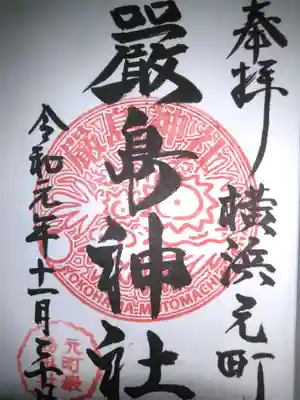 奉拝
横浜元町
厳島神社
厳島神社
YOKOHAMA-MOTOMACHI
令和元年十一月三十日